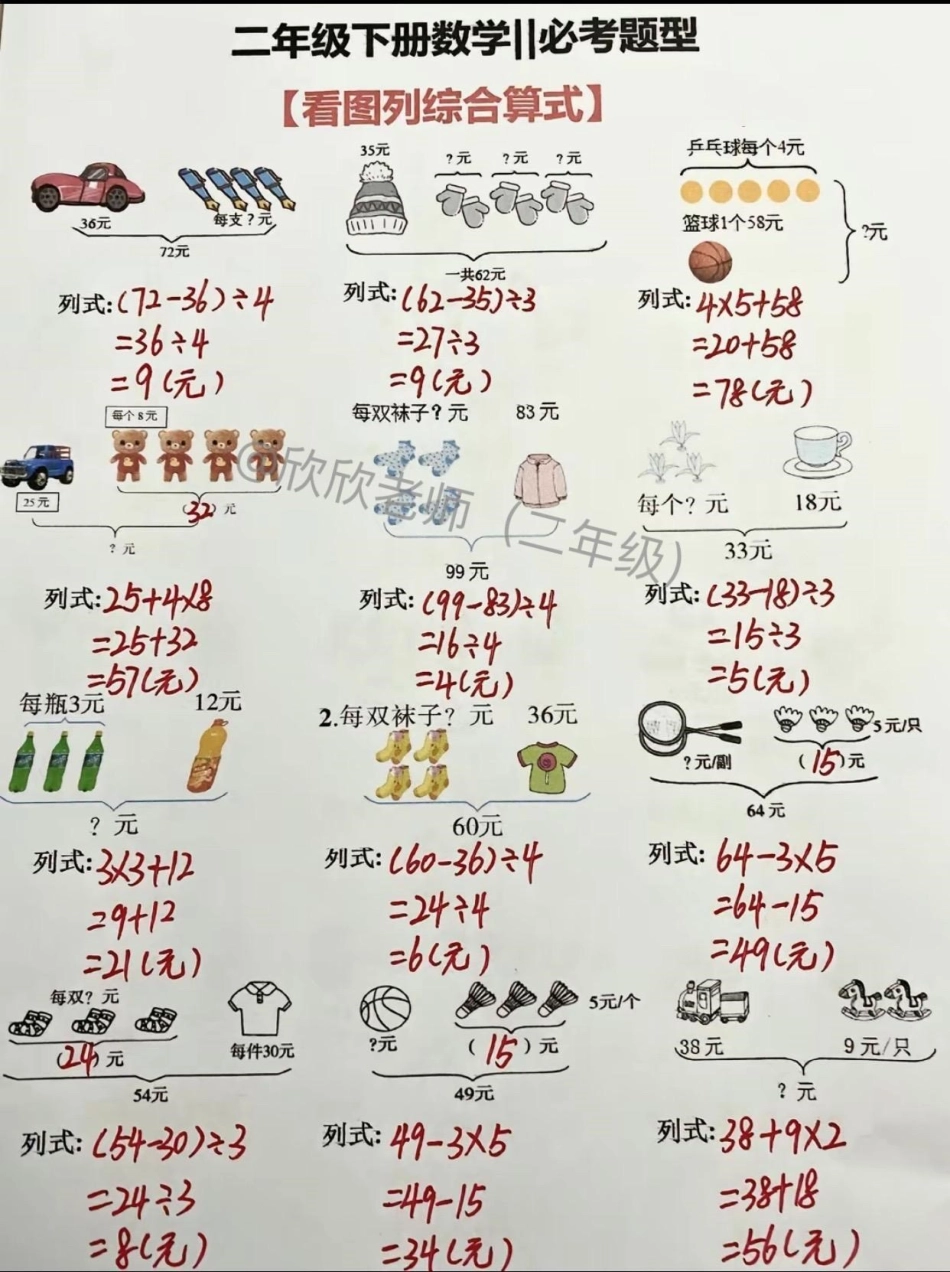 二年级下册数学||必考题型
【看图列综合算式】
36元
每支？元
72元
列式:(72-36)÷4
=36÷4
=9(元)
35元
？元 ？元 ？元
一共62元
列式:(62-35)÷3
=27÷3
=9(元)
乒乓球每个4元
篮球1个58元
?元
列式:4×5+58
=20+58
=78(元)
每个8元
25元
(32)元
？元
列式:25+4×8
=25+32
=57(元)
每双袜子？元 83元
99元
列式:(99-83)÷4
=16÷4
=4(元)
每个？元 18元
33元
列式:(33-18)÷3
=15÷3
=5(元)
@欣欣老师（二年级）
每瓶3元 12元
？元
列式:3×3+12
=9+12
=21(元)
2.每双袜子？元 36元
60元
列式:(60-36)÷4
=24÷4
=6(元)
5元/只
?元/副
(15)元
64元
列式:64-3×5
=64-15
=49(元)
每双？元
(24)元
每件30元
54元
列式:(54-30)÷3
=24÷3
=8(元)
5元/个
?元
(15)元
49元
列式:49-3×5
=49-15
=34(元)
38元 9元/只
？元
列式:38+9×2
=38+18
=56(元)